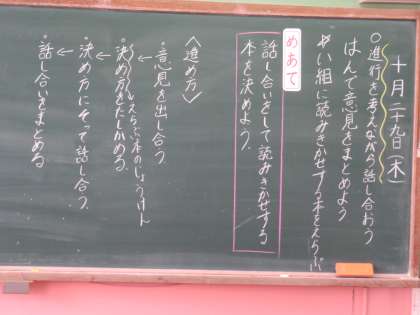 十月二十九日(木)
○進行を考えながら話し合おう
はんで意見をまとめよう
い組に読みきかせする本をえらぶ
めあて
話し合いをして読みきかせする
本を決めよう。
〈進め方〉
・意見を出し合う
えらぶ本のじょうけん
・決め方をたしかめる
・決め方にそって話し合う。
・話し合いをまとめる